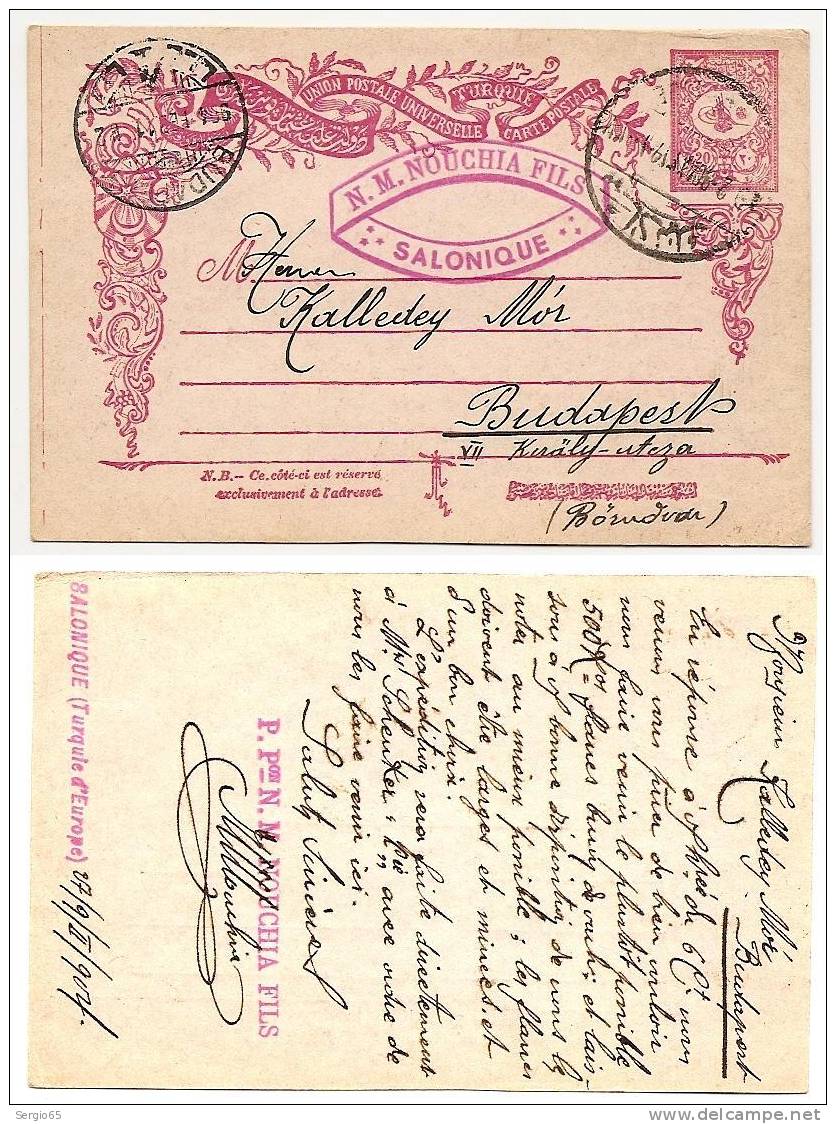 UNION POSTALE UNIVERSELLE
TURQUIE
CARTE POSTALE
20
BUDAPEST
N. M. NOUCHIA FILS
SALONIQUE
M
Herrn
Kalledey Mór
Budapest
VII Király-utcza
N.B.— Ce côté-ci est réservé
exclusivement à l'adresse
(Börudvar)
Monsieur Kalledey Mór
Budapest
En réponse à
du 6 Ct nous
venons vous prier de bien vouloir
nous faire venir le plustôt possible
500 Kos flancs de vache et lais-
sons à bonne disposition de nous le
noter au mieux possible; les flancs
doivent être larges et minces et
d'un bon choix.
L'expédition sera faite directement
à Mrs Schenker & Cie avec ordre de
nous les faire venir ici.
Saluts Sincères
P. Pon N. M. NOUCHIA FILS
SALONIQUE (Turquie d'Europe)
Sergio65
www.delcampe.net